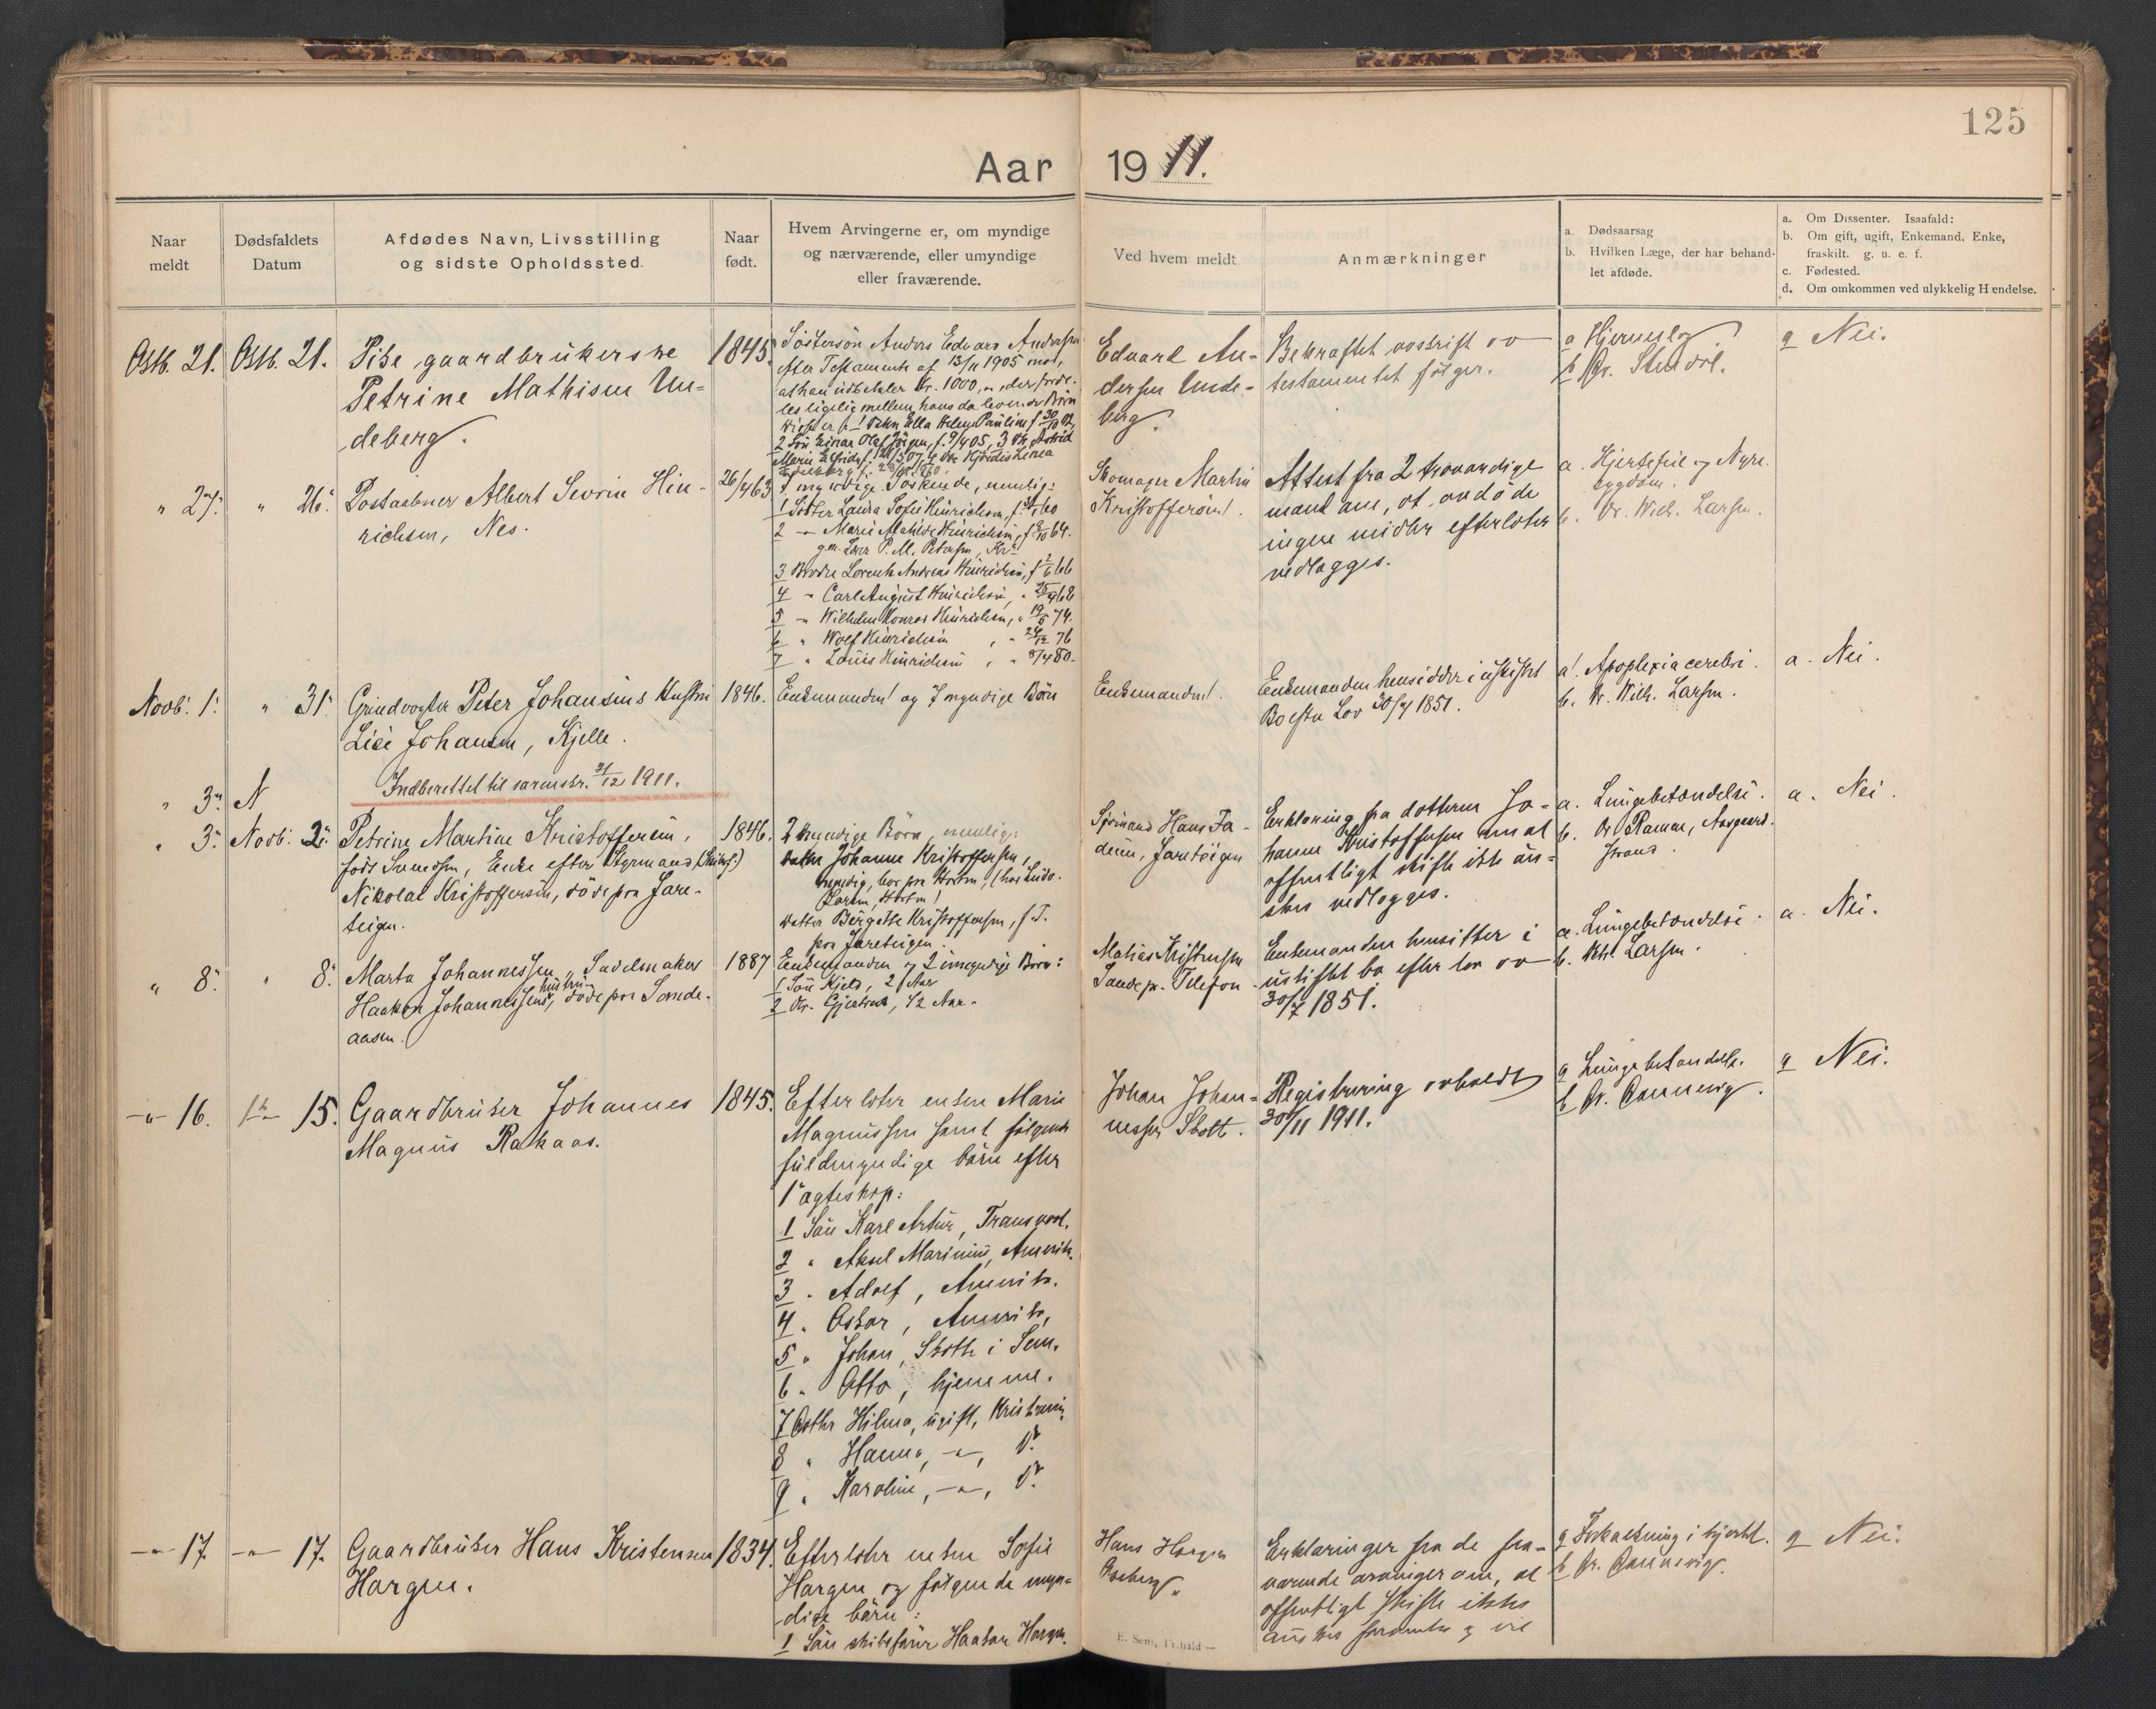 125
Aar 1911.
Naar meldt
Dødsfaldets Datum
Afdødes Navn, Livsstilling og sidste Opholdssted.
Naar født.
Hvem Arvingerne er, om myndige og nærværende, eller umyndige eller fraværende.
Ved hvem meldt
Anmærkninger
a. Dødsaarsag
b. Hvilken Læge, der har behandlet afdøde.
a. Om Dissenter. Isaafald:
b. Om gift, ugift, Enkemand, Enke, fraskilt. g. u. e. f.
c. Fødested.
d. Om omkommen ved ulykkelig Hændelse.
Oktb. 21. Oktb. 21.
Pike, gaardbrukerske
Petrine Mathisen Un-
deberg.
1845.
Søstersøn Anders Edvard Andersen
efter Testamente af 13/11 1905 mot,
at han udbetaler Kr. 1000,
les ligelig mellem hans da levende Børn
2 Søn Einar Olaf Jörgen, f. 9/4 05, 3 Dt. Astrid
Edvard An-
dersen Unde-
berg.
Bekræftet avskrift av
testamentet følger.
a Hjerneslag
b Dr. Stendal.
a Nei.
" 27. " 26.
Postaabner Albert Sevrin Hin-
richsen, Nes.
26/4 63
7 myndige Søskende, nemlig:
1 Søster Laura Sofie Hinrichsen, f. 60
2 — Marie Matilde Hinrichsen, f. 64.
gm. P. M. Petersen, Kr.a
3 Broder Lorentz Andreas Hinrichsen, f. 66
4 " Carl August Hinrichsen, " 68
5 " Wilhelm Konrad Hinrichsen, " 19/5 74.
6 " Wolf Hinrichsen, " 24/12 76
7 " Louis Hinrichsen, " 8/4 80.
Skomager Martin
Kristoffersen.
Attest fra 2 troværdige
mænd om, at avdøde
ingen midler efterlater
vedlægges.
a. Hjertefeil og Nyre-
sygdom.
b. Dr. Wilh. Larsen.
Novb. 1. " 31.
Grindvogter Peter Johansens Hustru
Lise Johansen, Kjelle.
1846.
Enkemanden og 7 myndige Børn
Enkemanden.
Enkemanden hensidder i uskiftet
Bo efter Lov 30/7 1851.
a. Apoplexia cerebri.
b. Dr. Wilh. Larsen.
a. Nei.
" 3. N
Indberettet til sorenskr. 31/12 1911.
" 3. Novb. 2.
Petrine Martine Kristoffersen,
født Svendsen, Enke efter Styrmand
Nikolai Kristoffersen, døde paa Jare-
teigen.
1846.
2 myndige Børn, nemlig:
Datter Johanne Kristoffersen,
myndig, bor paa Horten,
Larsen, Horten
Datter Bergitte Kristoffersen,
paa Jareteigen.
Sjømand Hans
Jareteigen
Erklæring fra datteren Jo-
hanne Kristoffersen om at
offentligt skifte ikke øn-
skes vedlægges.
a. Lungebetændelse.
b. Dr Ramm, Aasgaard-
strand.
a. Nei.
" 8. " 8.
Marta Johannessen, Sadelmaker
Haakon Johannessens hustru, døde paa Sande-
aasen.
1887
Enkemanden og 2 umyndige Børn:
1 Søn Kjeld, 2 Aar
2 Dt. Gjertrud, 1/2 Aar.
Matias Kristensen
Sande pr. Telefon.
Enkemanden hensitter i
uskiftet bo efter lov av
30/7 1851.
a. Lungebetændelse.
b. Wilh. Larsen.
a. Nei.
—"— 16. —"— 15.
Gaardbruker Johannes
Magnus Rakaas.
1845.
Efterlater enken Marie
Magnussen samt følgende
fuldmyndige børn efter
1ste ægteskap:
1 Søn Karl Artur, Transvaal.
2 " Aksel Marinius, Amerik.
3 " Adolf, Amerik.
4 " Oskar, Amerik.
5 " Johan, Skotte i Sem.
6 " Otto, hjemme.
7 Datter Hilma, ugift, Kristiania
8 " Hanna, —"—, Do.
9 " Karoline, —"—, Do.
Johan Johan-
nessen Skott.
Registrering avholdt
30/11 1911.
a Lungebetændelse.
b Dr. Dannevig.
a Nei.
—"— 17. —"— 17.
Gaardbruker Hans Kristensen
Horgen.
1834.
Efterlater enken Sofie
Horgen og følgende myn-
dige børn:
1 Søn skibsfører Haakon Horgen.
Hans Horgen
Erklæringer fra de fra-
værende arvinger om, at
offentligt skifte ikke
ønskes
a Forkalkning i hjertet.
b Dr. Dannevig.
a Nei.